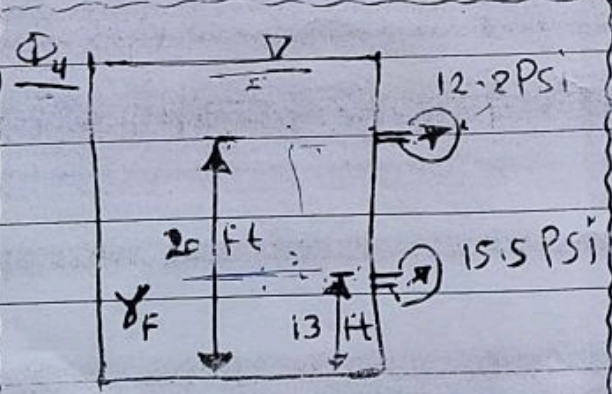 Φ4
12.2 PSi
20 ft
15.5 PSi
γF
13 ft